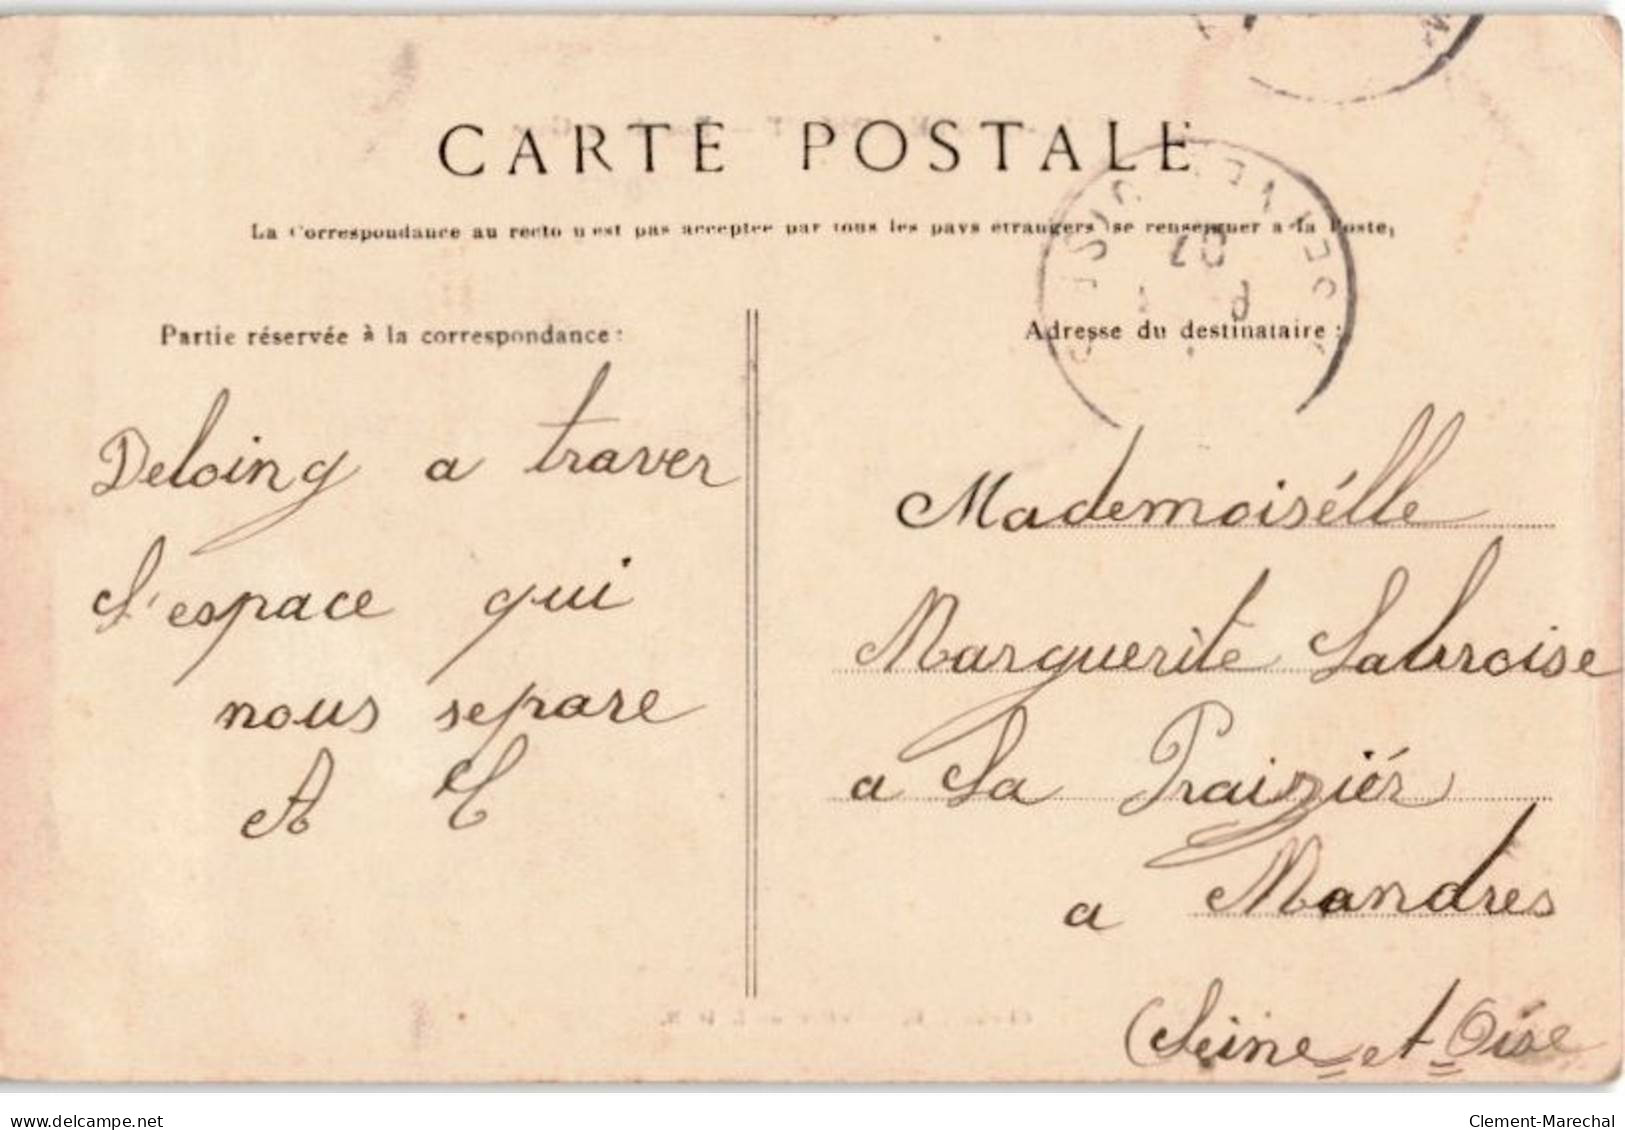 CARTE POSTALE
La Correspondance au recto n'est pas acceptée par tous les pays étrangers (se renseigner à la Poste)
Partie réservée à la correspondance :
Adresse du destinataire :
Deloing a traver
L'espace qui
nous separe
A C
Mademoisélle
Marguerite Labroise
a La
a Mandres
(Seine et Oise
07
delcampe.net
Clement-Marechal